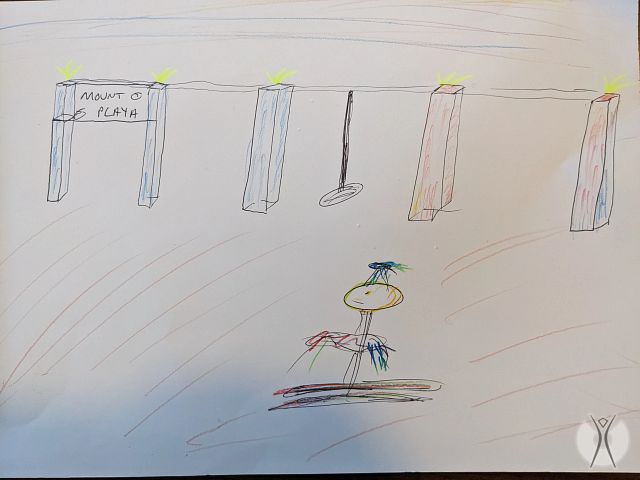 MOUNT
PLAYA